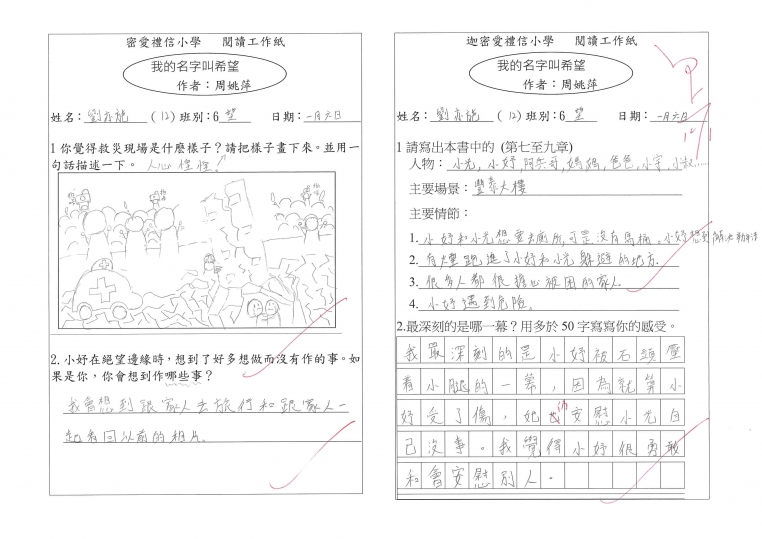 密愛禮信小學 閱讀工作紙
我的名字叫希望
作者：周姚萍
姓名：劉亦施 (12) 班別：6望 日期：一月六日
1 你覺得救災現場是什麼樣子？請把樣子畫下來。並用一
句話描述一下。 人心惶惶！
2. 小妤在絕望邊緣時，想到了好多想做而沒有作的事。如
果是你，你會想到作哪些事？
我會想到跟家人去旅行和跟家人一
起看回以前的相片。
迦密愛禮信小學 閱讀工作紙
我的名字叫希望
作者：周姚萍
姓名：劉亦施 (12) 班別：6望 日期：一月六日
1 請寫出本書中的 (第七至九章)
人物：小光，小妤，阿矢哥，媽媽，爸爸，小宇，小叔……
主要場景：豐泰大樓
主要情節：
1. 小妤和小光想要去廁所，可是沒有馬桶，小妤想到解決辦法
2. 有煙跑進了小妤和小光躲避的地方.
3. 很多人都很擔心被困的家人.
4. 小妤遇到危險.
2.最深刻的是哪一幕？用多於 50 字寫寫你的感受。
我最深刻的是小妤被石頭壓
着小腿的一幕，因為就算小
妤受了傷，她仍安慰小光自
己沒事。我覺得小妤很勇敢
和會安慰別人。